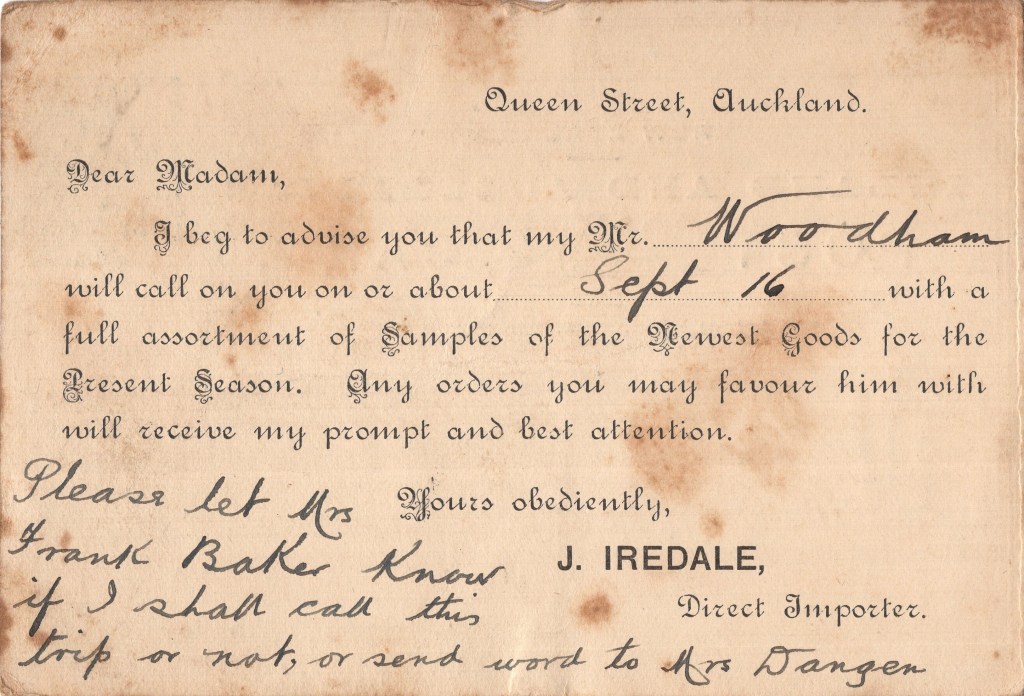 Queen Street, Auckland.
Dear Madam,
I beg to advise you that my Mr. Woodham
will call on you on or about Sept 16 with a
full assortment of Samples of the Newest Goods for the
Present Season. Any orders you may favour him with
will receive my prompt and best attention.
Yours obediently,
J. IREDALE,
Direct Importer.
Please let Mrs
Frank Baker Know
if I shall call this
trip or not, or send word to Mrs Dangen